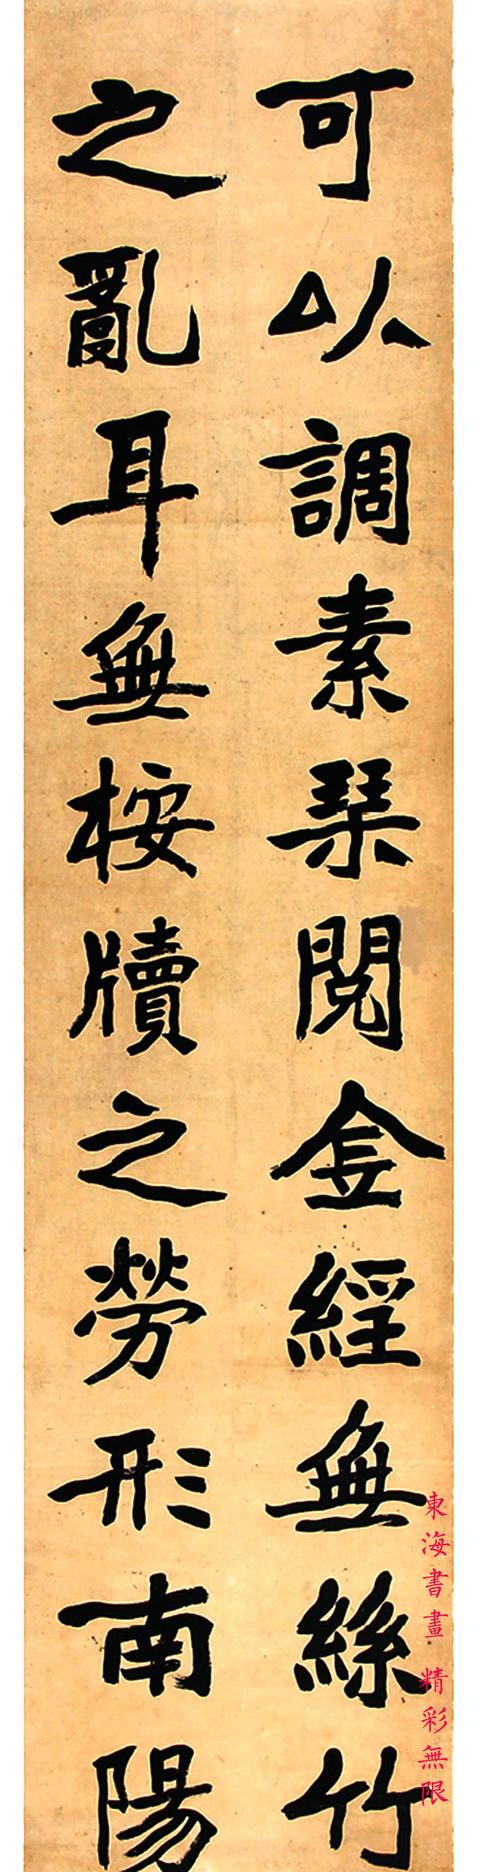 可以調素琹閱金經無絲竹
之亂耳無桉牘之勞形南陽
東海書畫 精彩無限